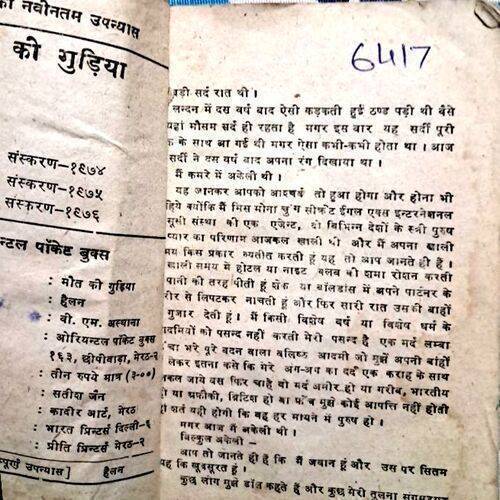 का नवीनतम उपन्यास
की गुड़िया
संस्करण—१९७४
संस्करण—१९७५
संस्करण—१९७६
न्टल पॉकेट बुक्स
: मौत की गुड़िया
: हैलन
: वी. एम. अस्थाना
: ओरियन्टल पॉकेट बुक्स
१६३, छीपीवाड़ा, मेरठ-२
: तीन रुपये मात्र (३-००)
: सतीश जैन
: कादीर आर्ट, मेरठ
: भारत प्रिन्टर्स दिल्ली-६
: प्रीति प्रिन्टर्स मेरठ-२
म्पूर्ण उपन्यास] हैलन
6417
बड़ी सर्द रात थी ।
लन्दन में दस वर्ष बाद ऐसी कड़कती हुई ठण्ड पड़ी थी वैसे
यहां मौसम सर्द ही रहता है मगर इस बार यह सर्दी पूरी
के साथ आ गई थी मगर ऐसा कभी-कभी होता था । आज
सर्दी ने दस वर्ष बाद अपना रंग दिखाया था ।
मैं कमरे में अकेली थी ।
यह जानकर आपको आश्चर्य तो हुआ होगा और होना भी
हिये क्योंकि मैं मिस मोना सीक्रेट ईगल एक्स इन्टरनेशनल
सूसी संस्था की एक एजेन्ट, दो विभिन्न देशों के स्त्री पुरुष
प्यार का परिणाम आजकल खाली थी और मैं अपना खाली
मय किस प्रकार व्यतीत करती हूं यह तो आप जानते ही हैं ।
खाली समय में होटल या नाइट क्लब की शमा रोशन करती
पानी की तरह पीती हूं शेक या बॉलडांस में अपने पार्टनर के
रीर से लिपटकर नाचती हूं और फिर सारी रात उसकी बाहों
गुजार देती हूं । मैं किसी विशेष वर्ष या विशेष धर्म के
आदमियों को पसन्द नहीं करती मेरी पसन्द है एक मर्द लम्बा
भरे पूरे बदन वाला बलिष्ठ आदमी जो मुझे अपनी बांहों
लेकर इतना कसे कि मेरे अंग-अंग का दर्द एक कराह के साथ
कल जाये बस फिर चाहे वो मर्द अमीर हो या गरीब, भारतीय
हो या अफ्रीकी, ब्रिटिश हो या फ्रेंच मुझे कोई आपत्ति नहीं होती
शर्त यही होगी कि वह हर मायने में पुरुष हो ।
मगर आज मैं अकेली थी ।
बिल्कुल अकेली—
आप तो जानते ही हैं कि मैं जवान हूं और उस पर सितम
यह कि खूबसूरत हूं ।
कुछ लोग मुझे डॉल कहते हैं और कुछ मेरी तुलना संगमरमर